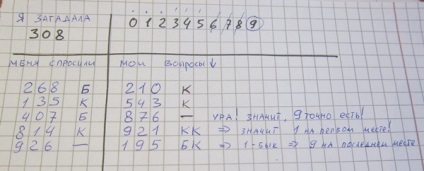 Я ЗАГАДАЛА
308
0 1 2 3 4 5 6 7 8 9
МЕНЯ СПРОСИЛИ МОИ ВОПРОСЫ ↓
268 Б 210 К
135 К 543 К
407 Б 876 — УРА! ЗНАЧИТ, 9 ТОЧНО ЕСТЬ!
814 К 921 КК ⇒ ЗНАЧИТ 1 НА ПЕРВОМ МЕСТЕ!
926 — 195 БК ⇒ 1-БЫК ⇒ 9 НА ПОСЛЕДНЕМ МЕСТЕ